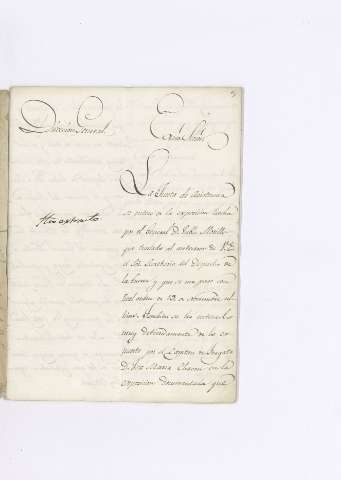 Direccion General.
Exmo. Señor
La Junta de Asistencia
se entero de la exposicion hecha
por el General D. Pablo Morillo
que traslado al antecesor de V.E.
el Sr. Secretario del Despacho de
la Guerra y que se me paso con
Real orden de 12 de Noviembre ul-
timo. Tambien se ha enterado
muy detenidamente de lo es-
puesto por el Capitan de Fragata
D. José Maria Chacon en la
exposicion documentada que